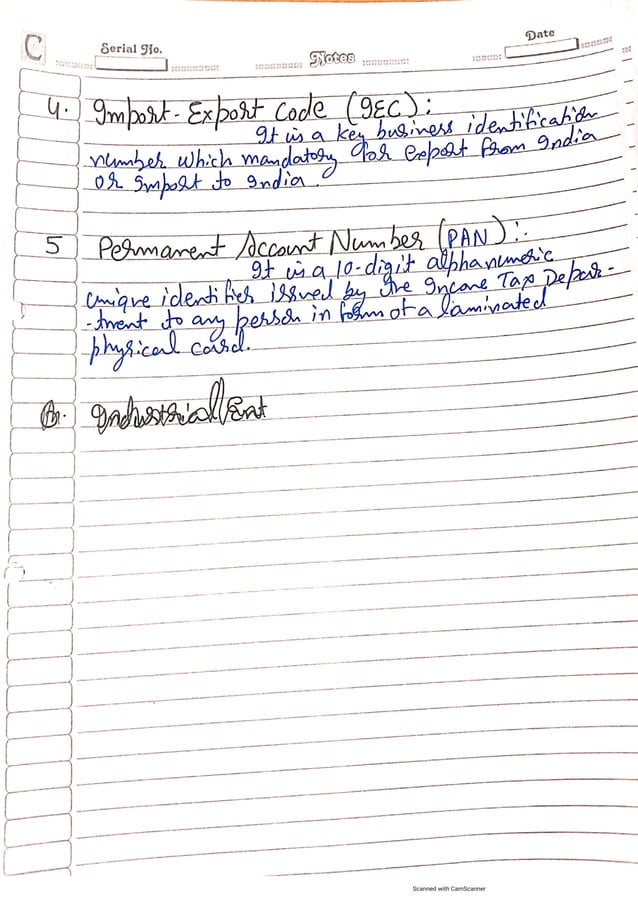 C
Serial No.
Notes
Date
4. Import-Export Code (IEC):
It is a key business identification
number which mandatory for export from India
or Import to India.
5 Permanent Account Number (PAN):-
It is a 10-digit alphanumeric
unique identifier issued by the Income Tax Depar-
-tment to any person in form of a laminated
physical card.
Industrial Ent
Scanned with CamScanner